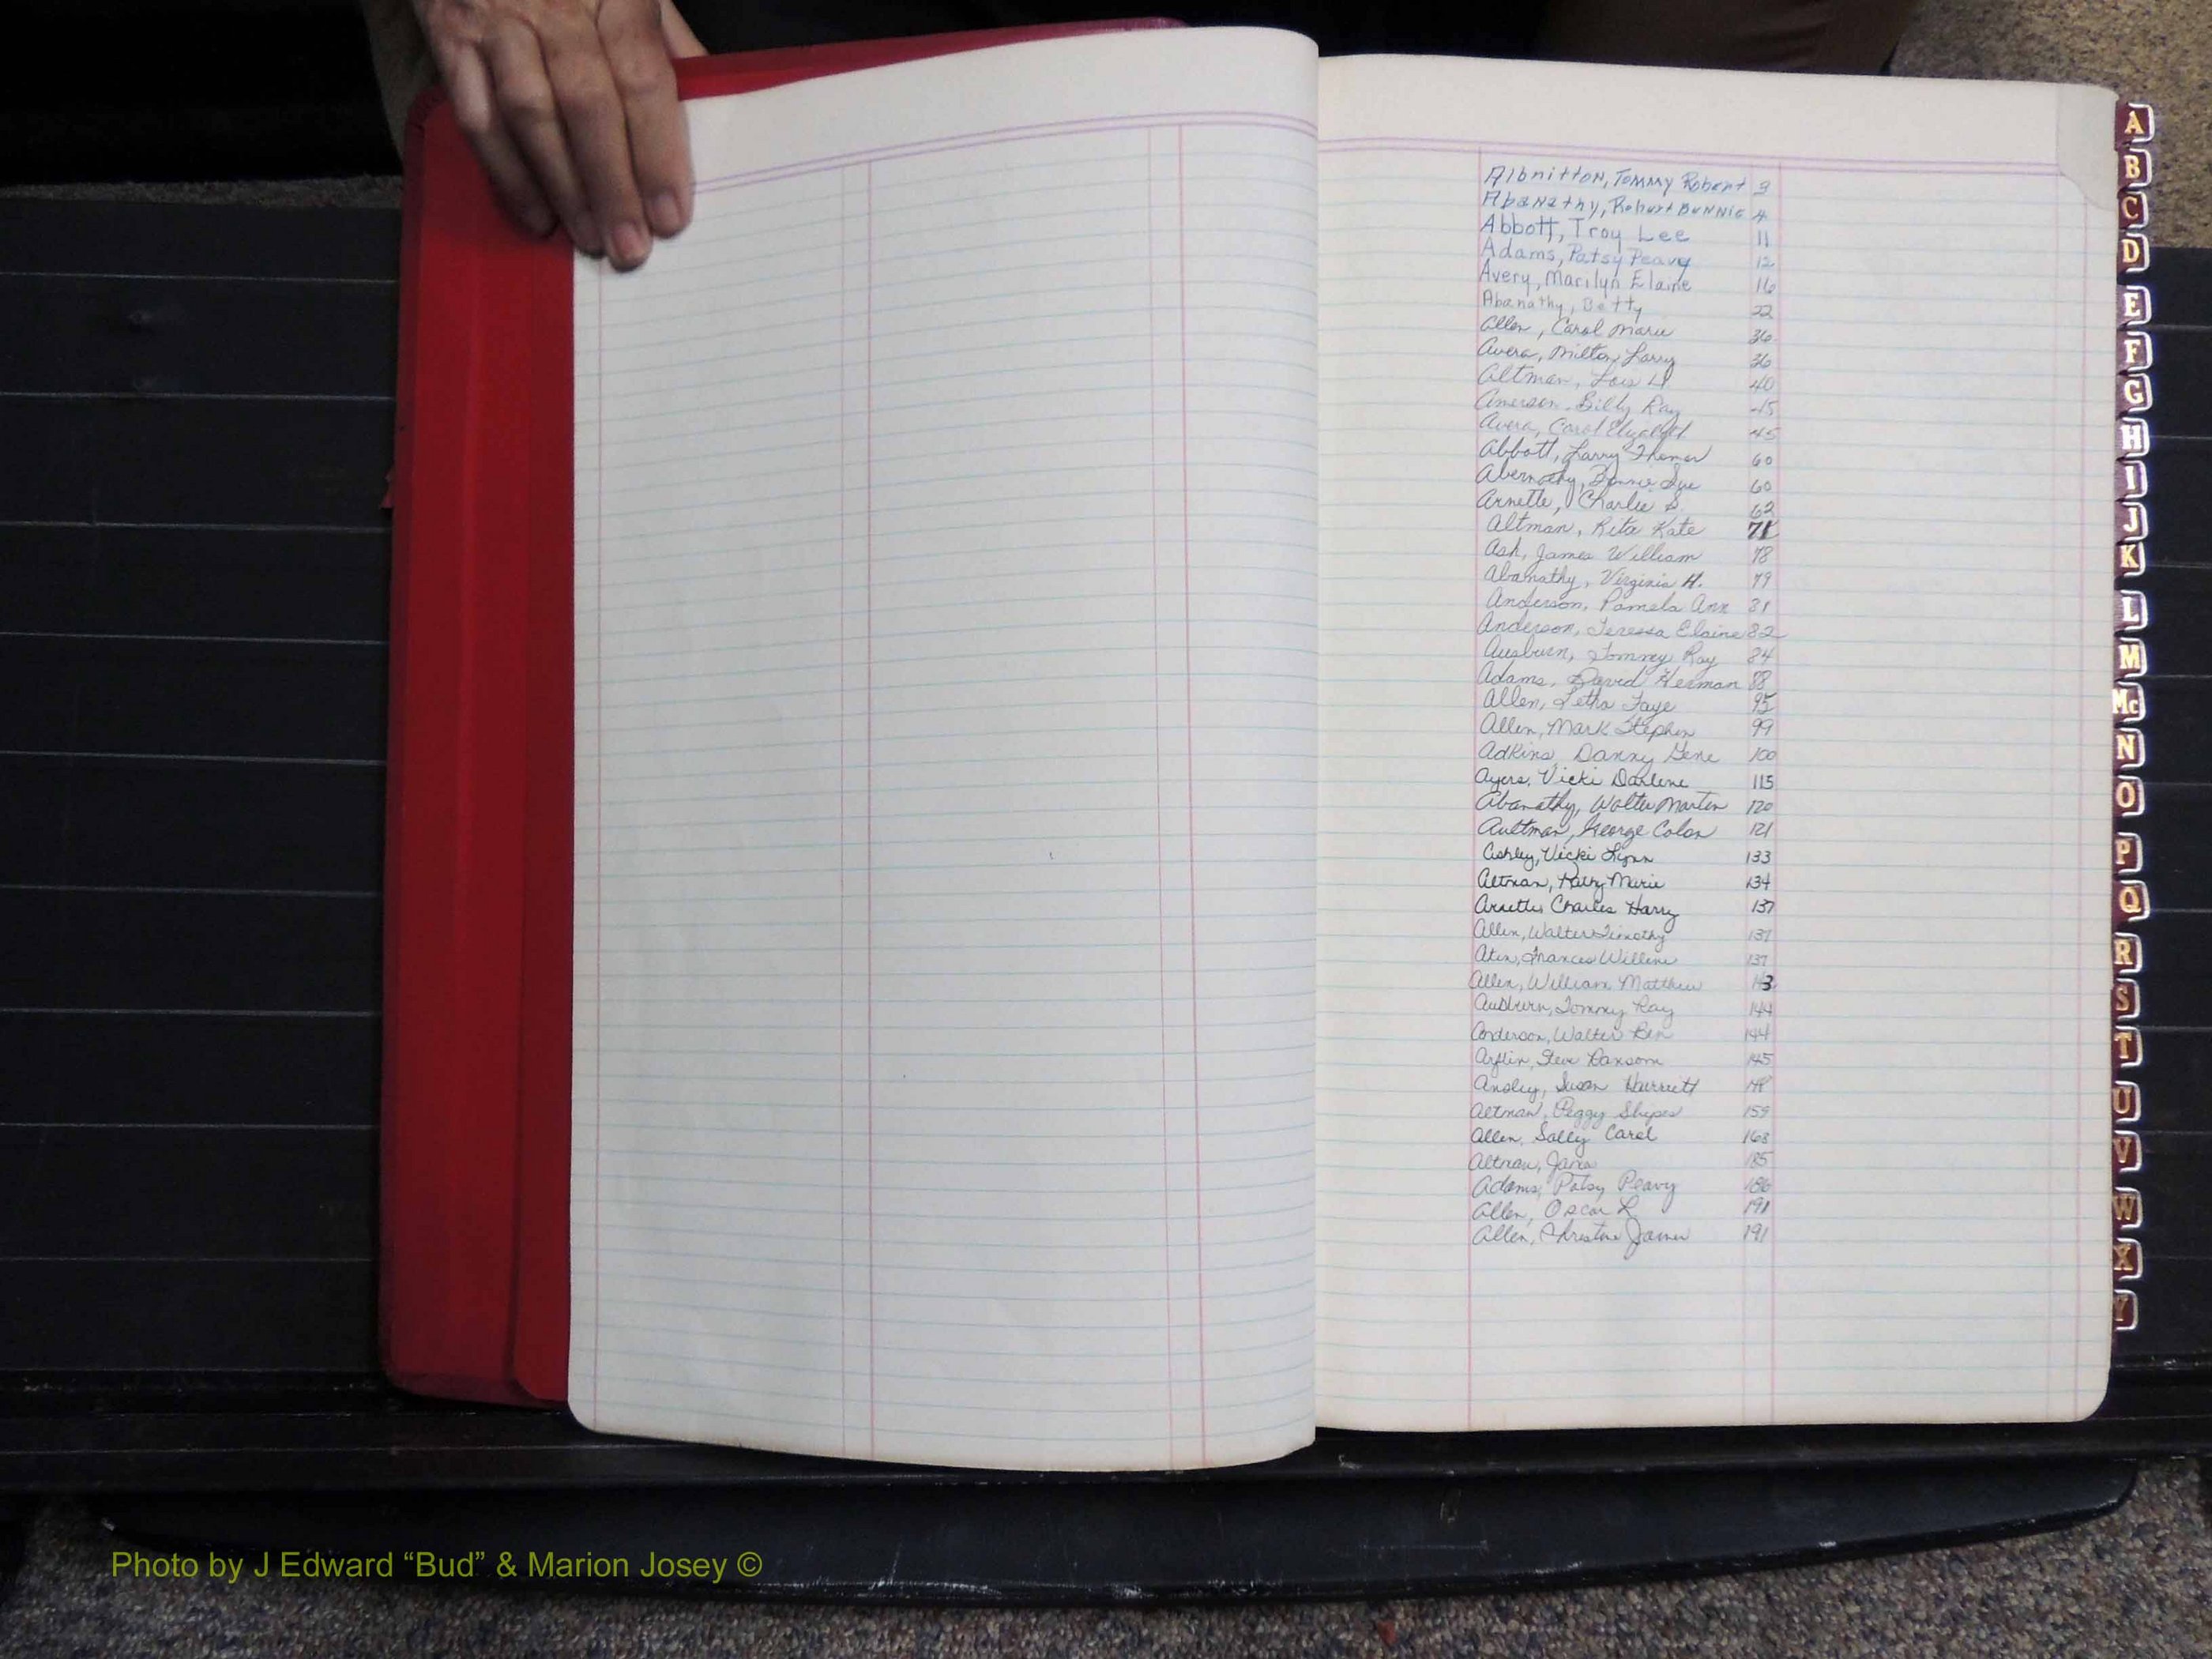 Albritton, Tommy Robert 3
Abanathy, Robert Bunnie 4
Abbott, Troy Lee 11
Adams, Patsy Peavy 12
Avery, Marilyn Elaine 16
Abanathy, Betty 22
Allen, Carol Marie 36
Avera, Milton Larry 36
Altman, Lois H. 40
Amerson, Billy Ray 45
Avera, Carol Elizabeth 45
Abbott, Larry Thomas 60
Abernathy, Bonnie Sue 60
Arnette, Charlie S. 62
Altman, Rita Kate 71
Ash, James William 78
Abanathy, Virginia H. 79
Anderson, Pamela Ann 81
Anderson, Teressa Elaine 82
Ausburn, Tommy Ray 84
Adams, David Herman 88
Allen, Letha Faye 95
Allen, Mark Stephen 99
Adkins, Danny Gene 100
Ayers, Vicki Darlene 115
Abanathy, Walter Martin 120
Aultman, George Colon 121
Ashley, Vicki Lynn 133
Altman, Kathy Marie 134
Arnette, Charles Harry 137
Allen, Walter Timothy 137
Aten, Frances Willene 137
Allen, William Matthew 143
Ausburn, Tommy Ray 144
Anderson, Walter Ben 144
Arflin, Steve Ransom 145
Ansley, Susan Harriett 148
Altman, Peggy Shipes 159
Allen, Sally Carol 163
Altman, Jana 185
Adams, Patsy Peavy 186
Allen, Oscar L 191
Allen, Christine James 191
A
B
C
D
E
F
G
H
I
J
K
L
M
Mc
N
O
P
Q
R
S
T
U
V
W
X
Y
Photo by J Edward “Bud” & Marion Josey ©